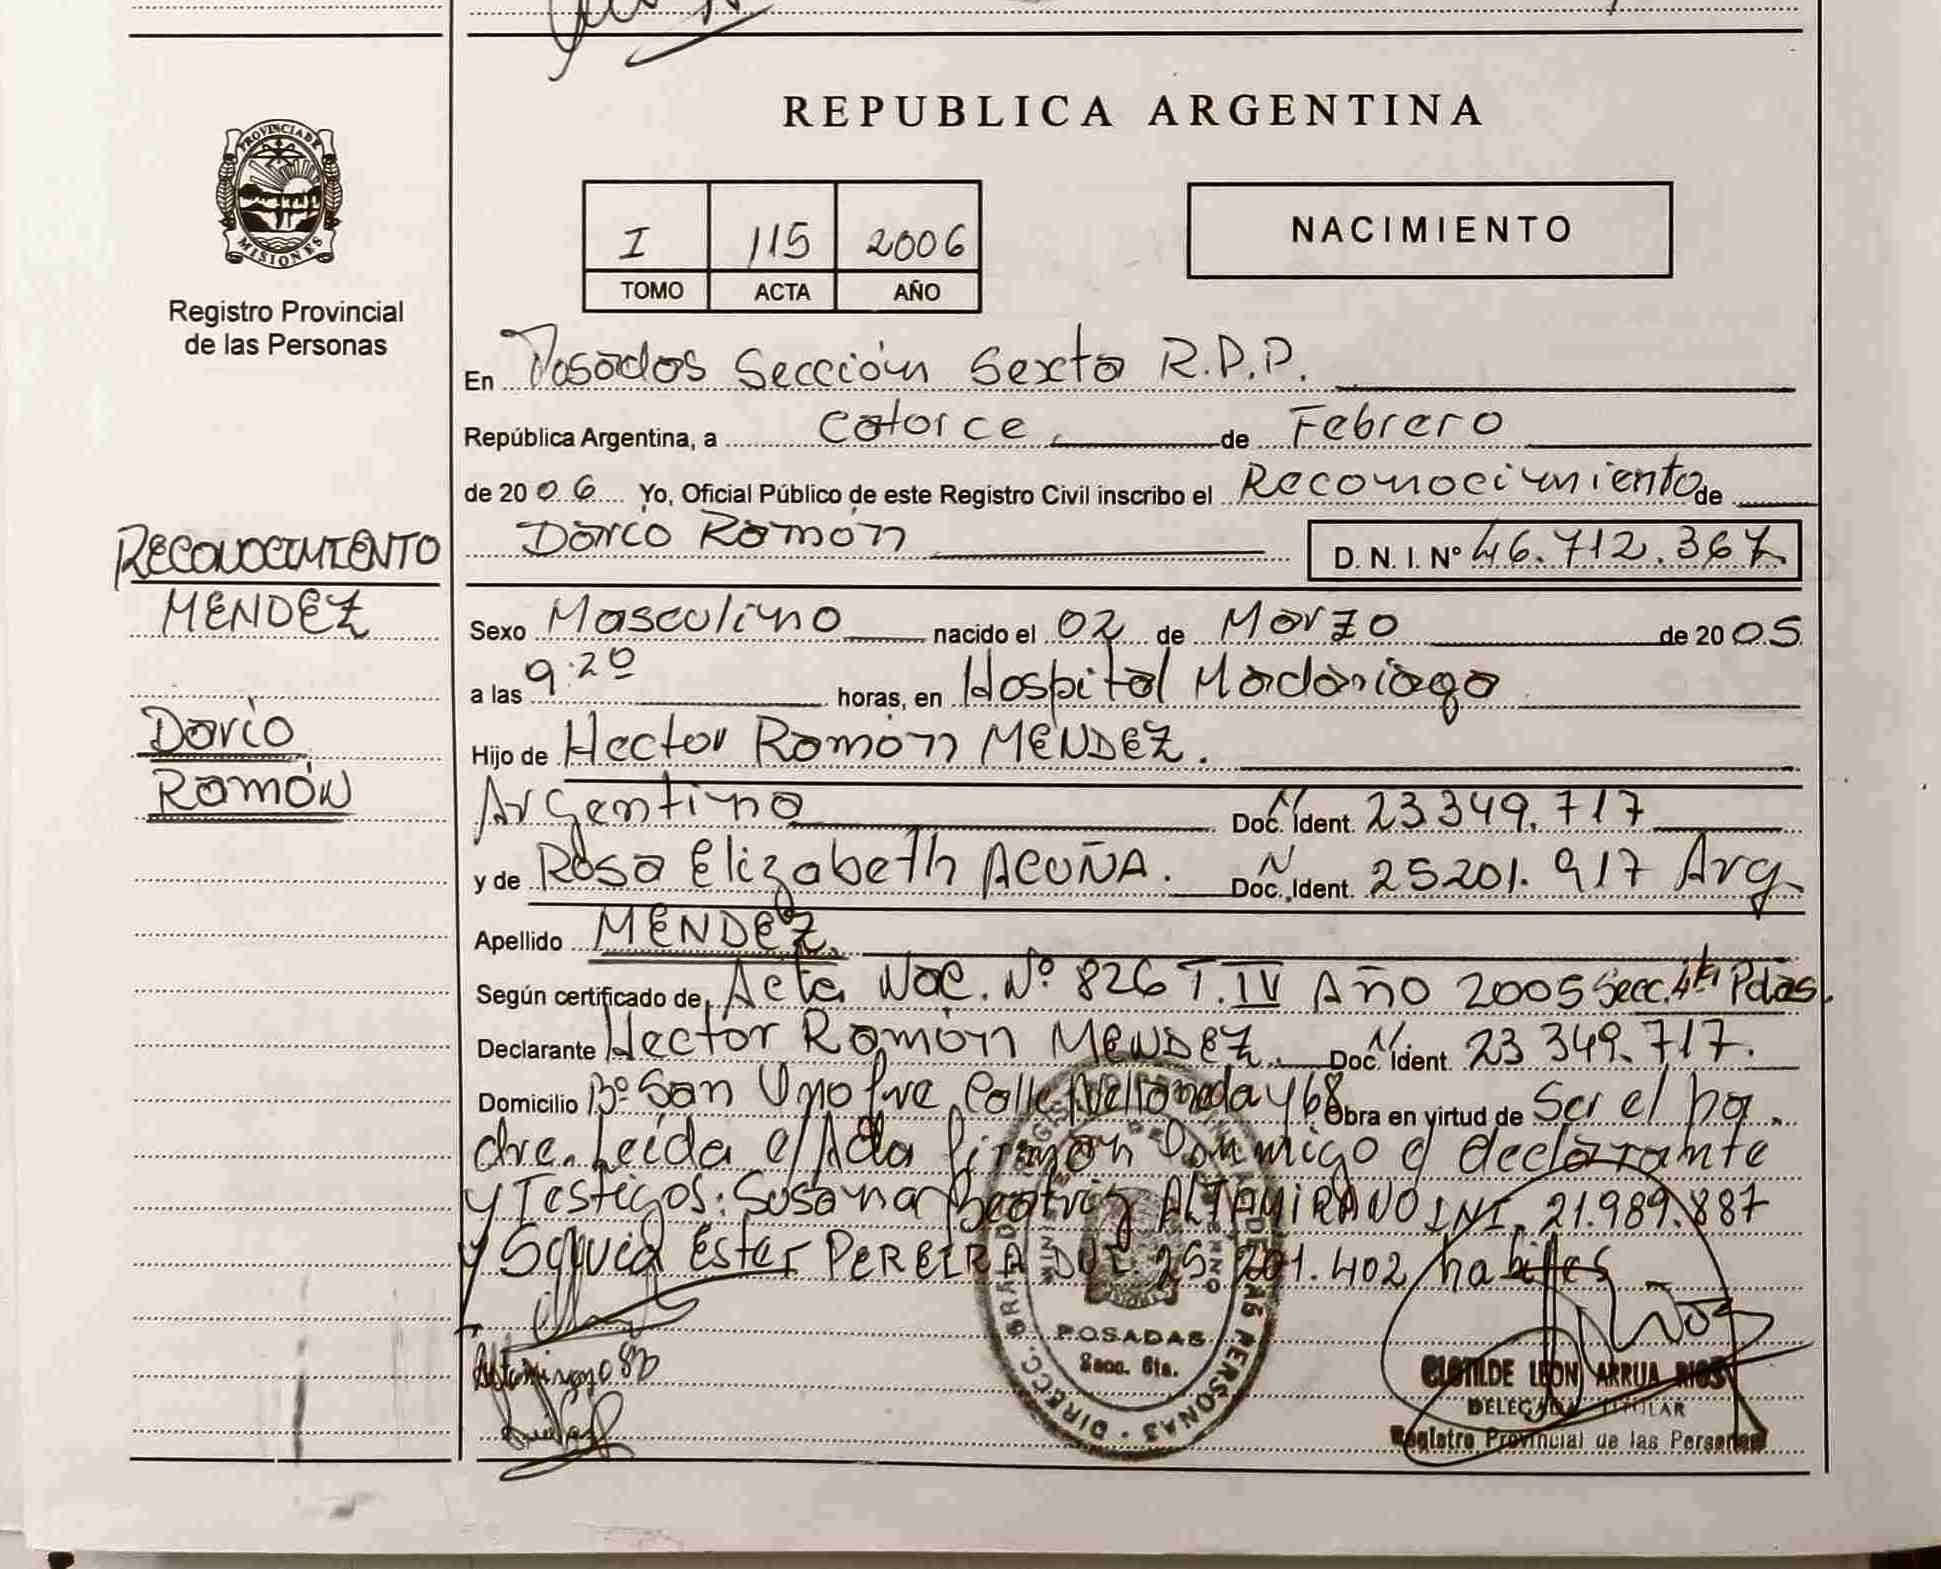 REPUBLICA ARGENTINA
PROVINCIA DE
MISIONES
Registro Provincial
de las Personas
I 115 2006
TOMO ACTA AÑO
NACIMIENTO
En Posadas Sección Sexta R.P.P.
República Argentina, a Catorce de Febrero
de 2006 Yo, Oficial Público de este Registro Civil inscribo el Reconocimiento de
Dario Ramón D. N. I. Nº 46.712.367
RECONOCIMIENTO
MENDEZ
Dario
Ramón
Sexo Masculino nacido el 02 de Marzo de 2005
a las 9:20 horas, en Hospital Madariaga
Hijo de Hector Ramón MENDEZ.
Argentino Doc. Ident. N 23349.717
y de Rosa Elizabeth ACUÑA. Doc. Ident. N 25201.917 Arg
Apellido MENDEZ
Según certificado de Acta Nac. Nº 826 T. IV Año 2005 Secc. 4ta Pdas.
Declarante Hector Ramón MENDEZ. Doc. Ident. N 23 349.717.
Domicilio Bº San Calle Avellaneda 468 Obra en virtud de Ser el pa
dre. Leída el Acta firman Conmigo el declarante
y Testigos: Susana Beatriz ALTAMIRANO DNI. 21.989.887
y Sylvia Ester PEREIRA DNI. 25.201.402 habiles
POSADAS
Secc. 6ta.
DIRECC. GRAL. DE LAS PERSONAS
CLOTILDE LEON ARRUA RIOS
DELEGADA TITULAR
Registro Provincial de las Personas